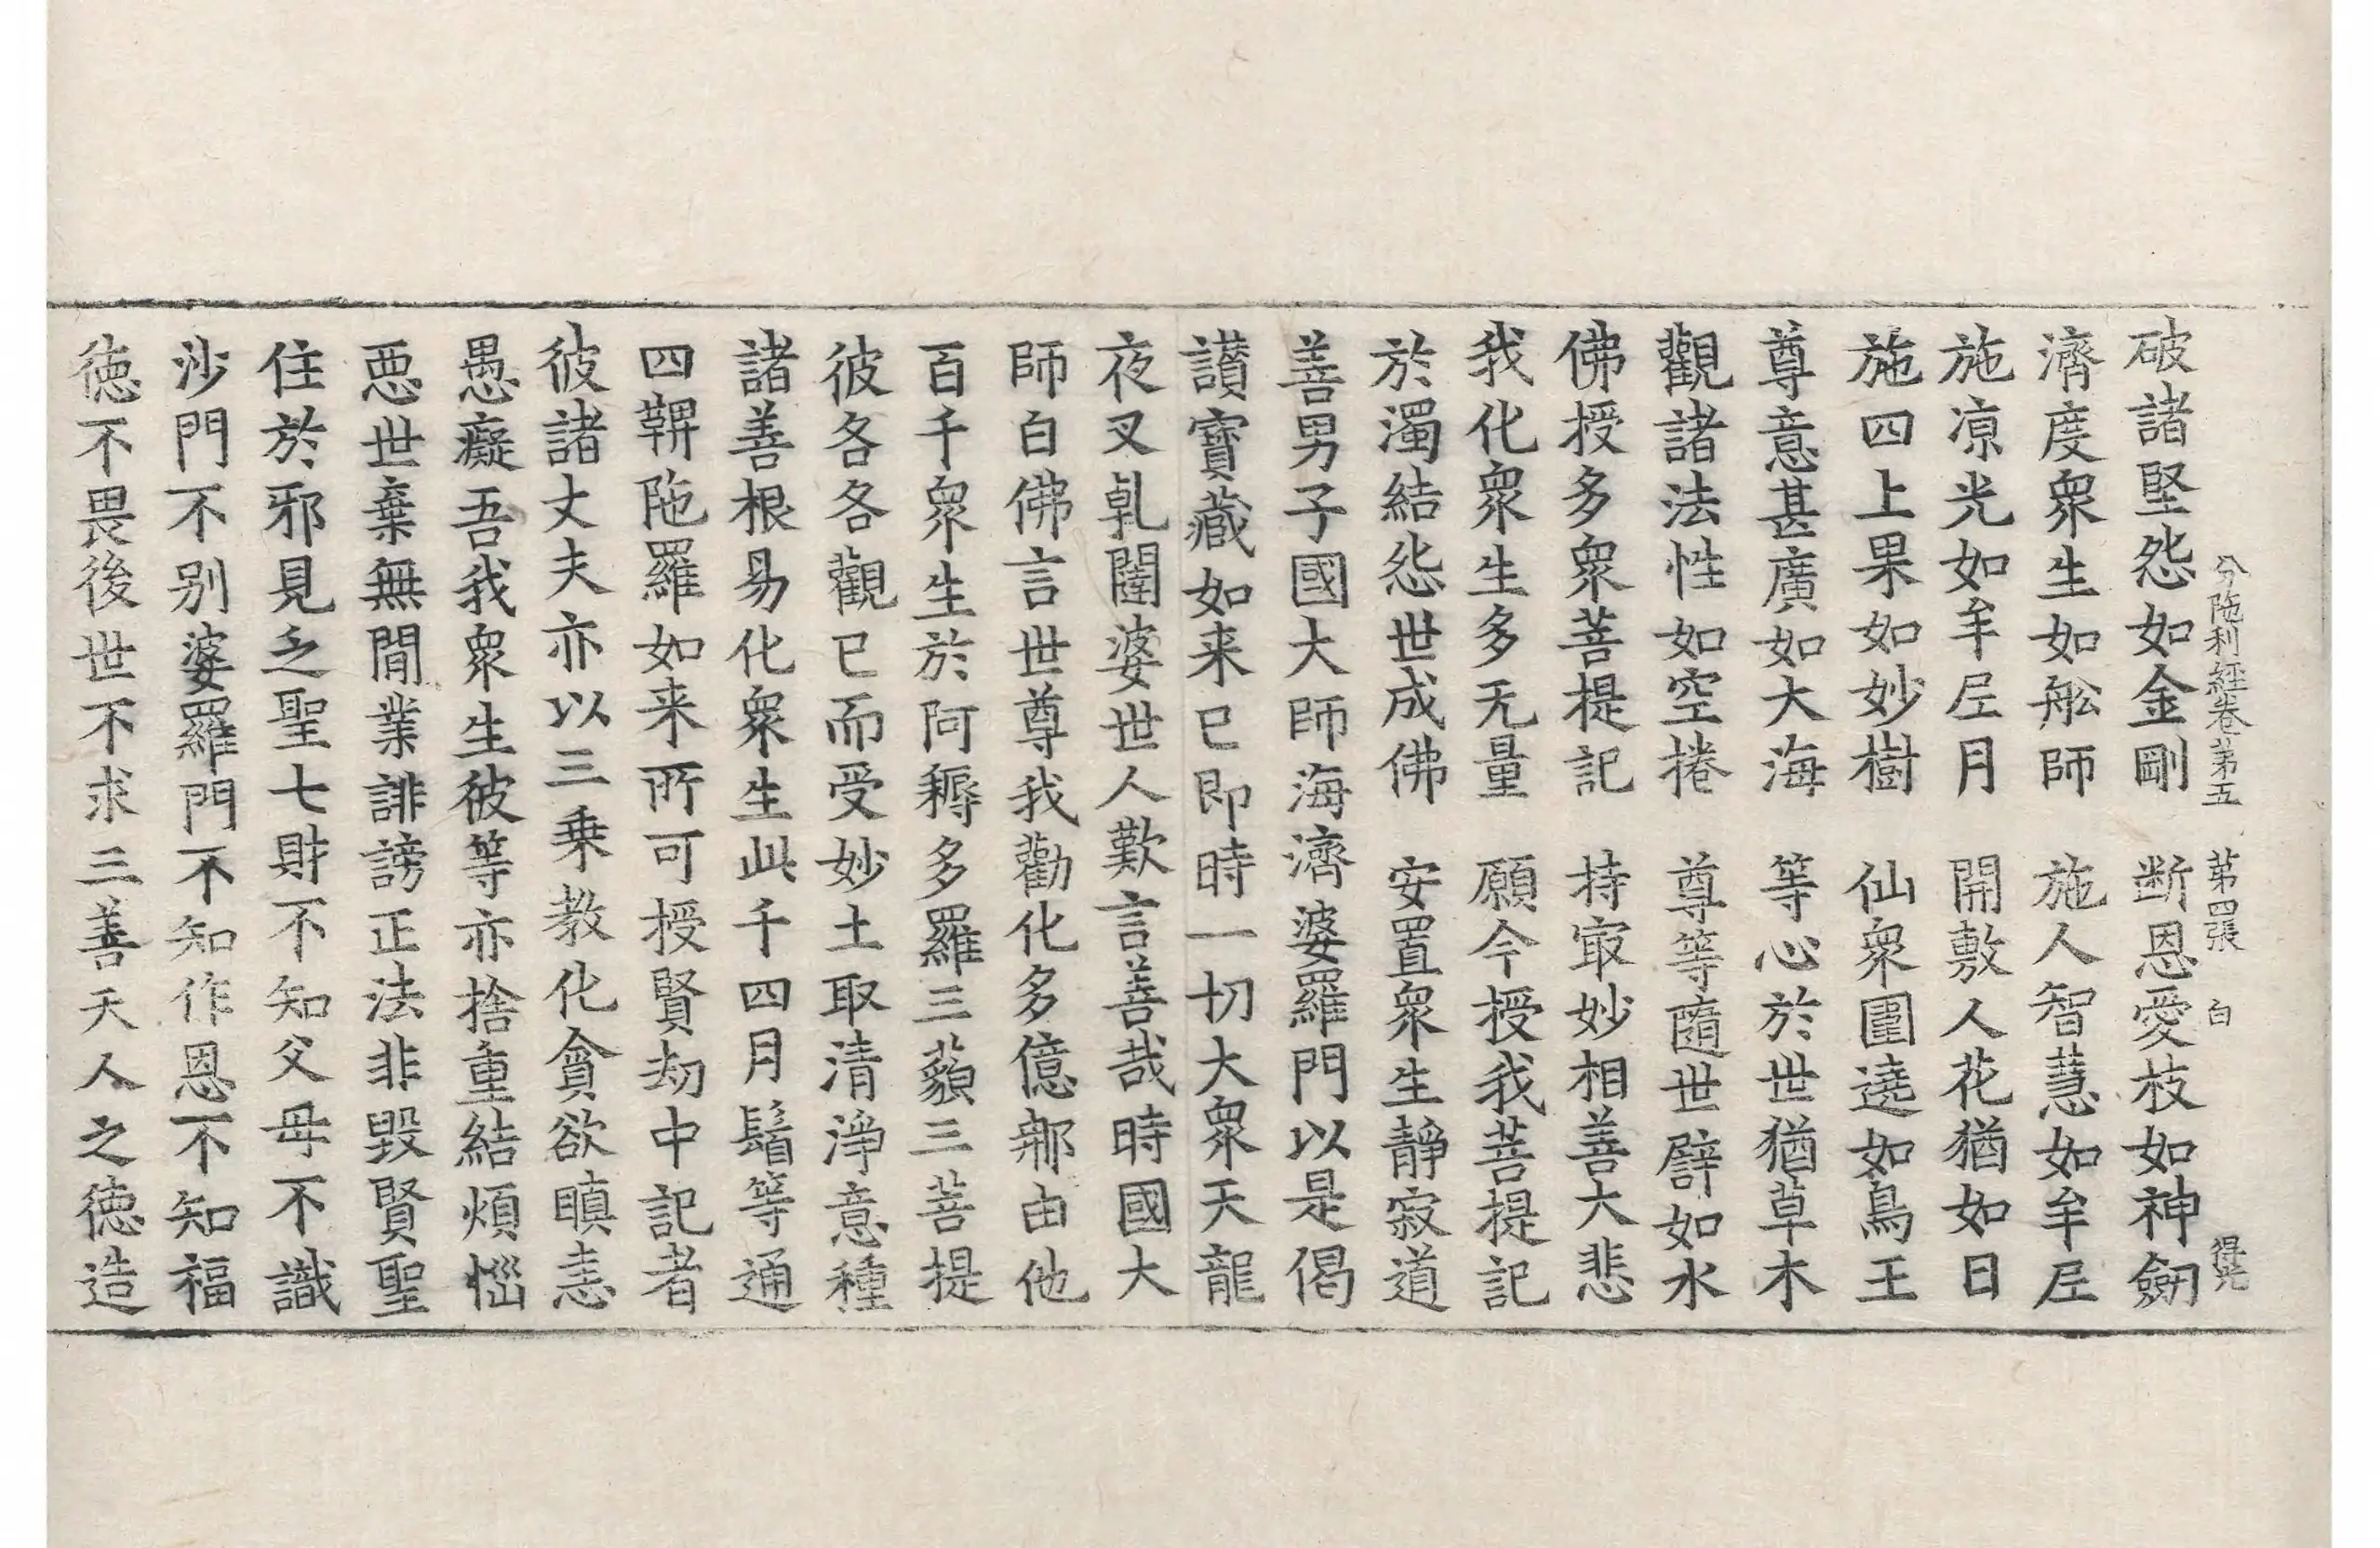 分陁利經卷第五 苐四張 白 得光
破諸堅怨如金剛 断恩愛枝如神劒
濟度衆生如舩師 施人智慧如牟𡰱
施凉光如牟𡰱月 開敷人花猶如日
施四上果如妙樹 仙衆圍遶如鳥王
尊意甚廣如大海 等心於世猶草木
觀諸法性如空捲 尊等隨世譬如水
佛授多衆菩提記 持㝡妙相善大悲
我化衆生多无量 願今授我菩提記
於濁結怨世成佛 安置衆生靜寂道
善男子國大師海濟婆羅門以是偈
讃寶藏如来已即時一切大衆天龍
夜叉乹闥婆世人歎言善哉時國大
師白佛言世尊我勸化多億那由他
百千衆生於阿耨多羅三藐三菩提
彼各各觀已而受妙土取清淨意種
諸善根易化衆生此千四月鬚等通
四鞞陁羅如来所可授賢劫中記者
彼諸丈夫亦以三乗教化貪欲瞋恚
愚癡吾我衆生彼等亦捨重結煩惱
惡世棄無間業誹謗正法非毀賢聖
住於邪見乏聖七財不知父母不識
沙門不别婆羅門不知作恩不知福
徳不畏後世不求三善天人之徳造